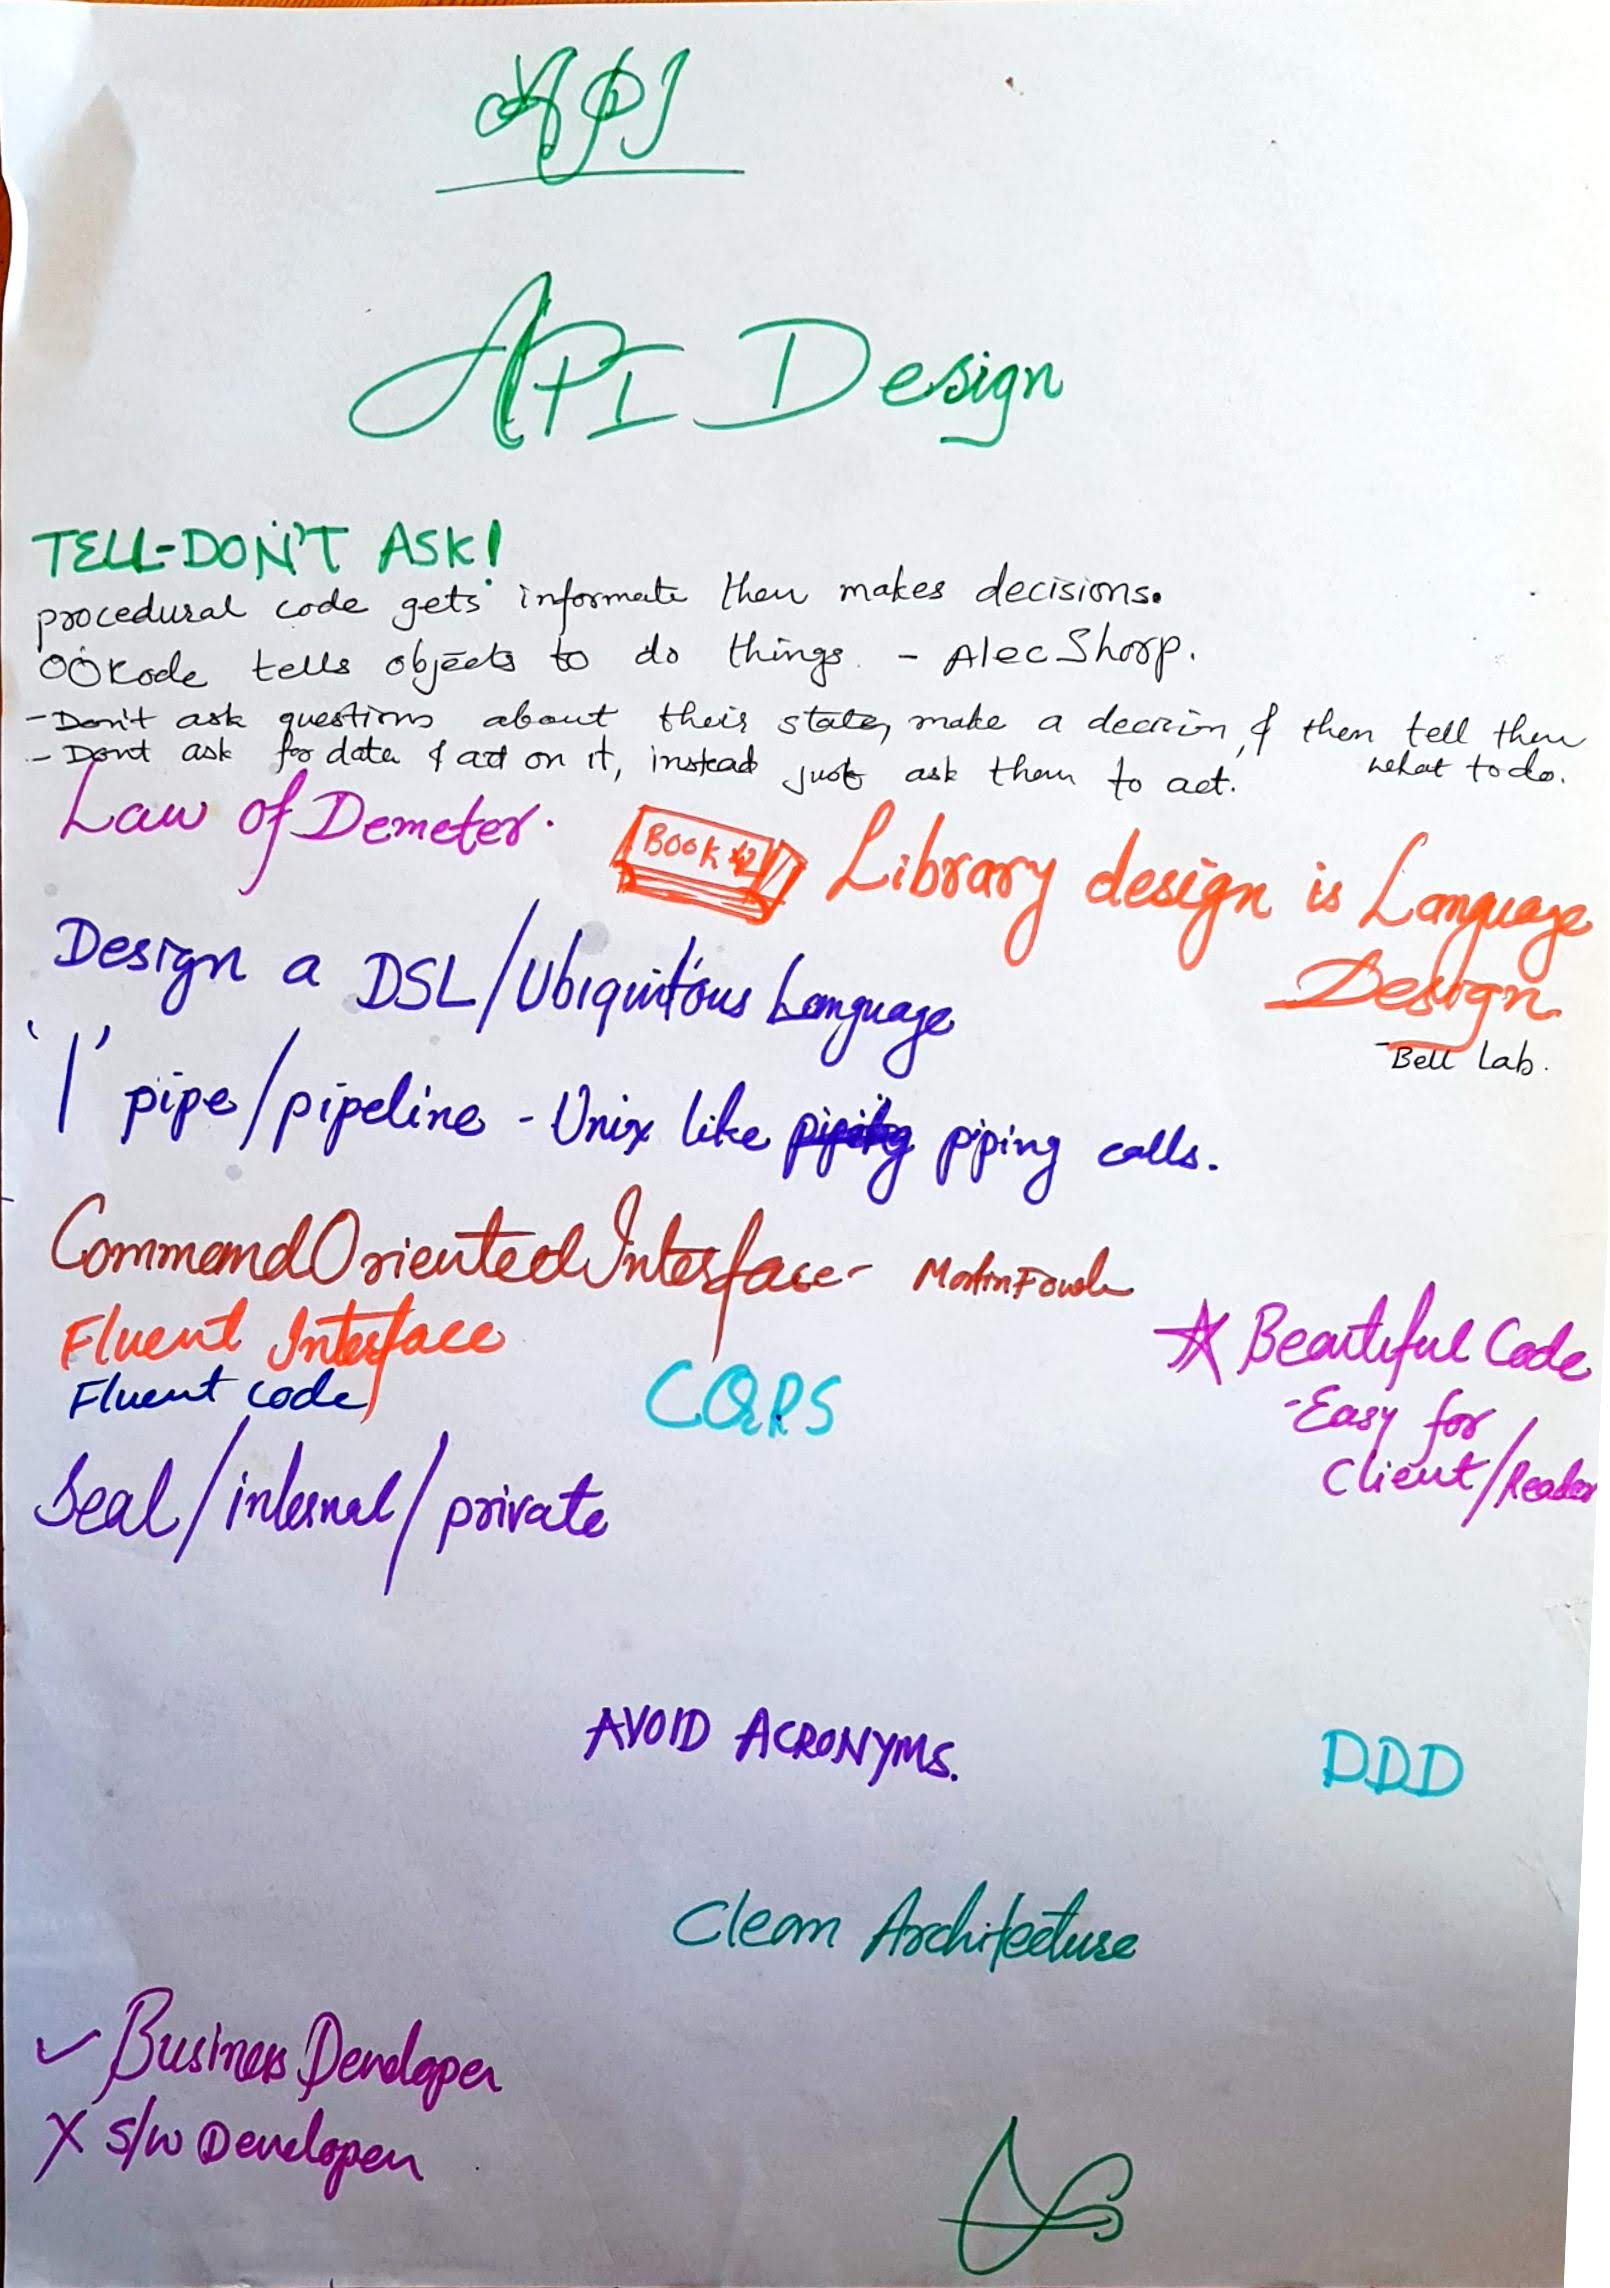 API
API Design
TELL-DON'T ASK!
procedural code gets informate then makes decisions.
OO code tells objects to do things. - Alec Sharp.
- Don't ask questions about their state, make a decision, & then tell them what to do.
- Dont ask for data & act on it, instead just ask them to act.
Law of Demeter.
BOOK
Library design is Language
Design
- Bell Lab.
Design a DSL/Ubiquitous Language
'|' pipe/pipeline - Unix like piping calls.
CommandOrientedInterface - Martin Fowler
Fluent Interface
Fluent code
CQRS
Beautiful Code
- Easy for
Client/Reader
Seal/internal/private
AVOID ACRONYMS.
DDD
Clean Architecture
✓ Business Developer
X S/W Developer